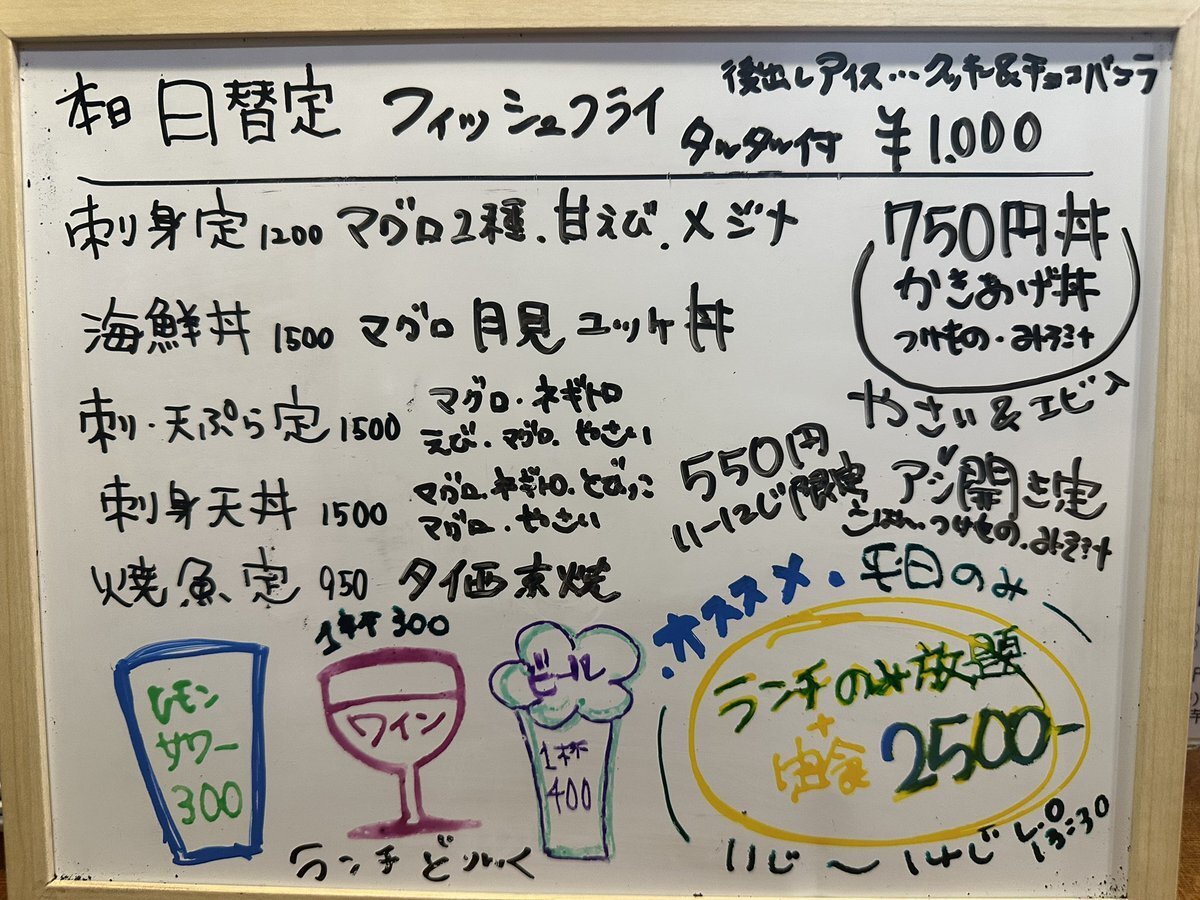 本日 日替定 フィッシュフライ
後出しアイス…クッキー&チョコバニラ
タルタル付 ¥1.000
刺身定 1200 マグロ2種.甘えび.メジナ
海鮮丼 1500 マグロ 月見 ユッケ丼
刺・天ぷら定 1500 マグロ・ネギトロ
えび.マグロ.やさい
刺身天丼 1500 マグロ.ネギトロ.とびっこ
マグロ.やさい
焼魚定 950 タイ西京焼
750円丼
かきあげ丼
つけもの・みそ汁
やさい&エビ入
550円
11-12じ限定
アジ開き定
ごはん.つけもの.みそ汁
オススメ.平日のみ
ランチのみ放題
+
2500-
11じ〜14じ L.O
13:30
レモン
サワー
300
1杯300
ワイン
ビール
1杯
400
ランチどりんく